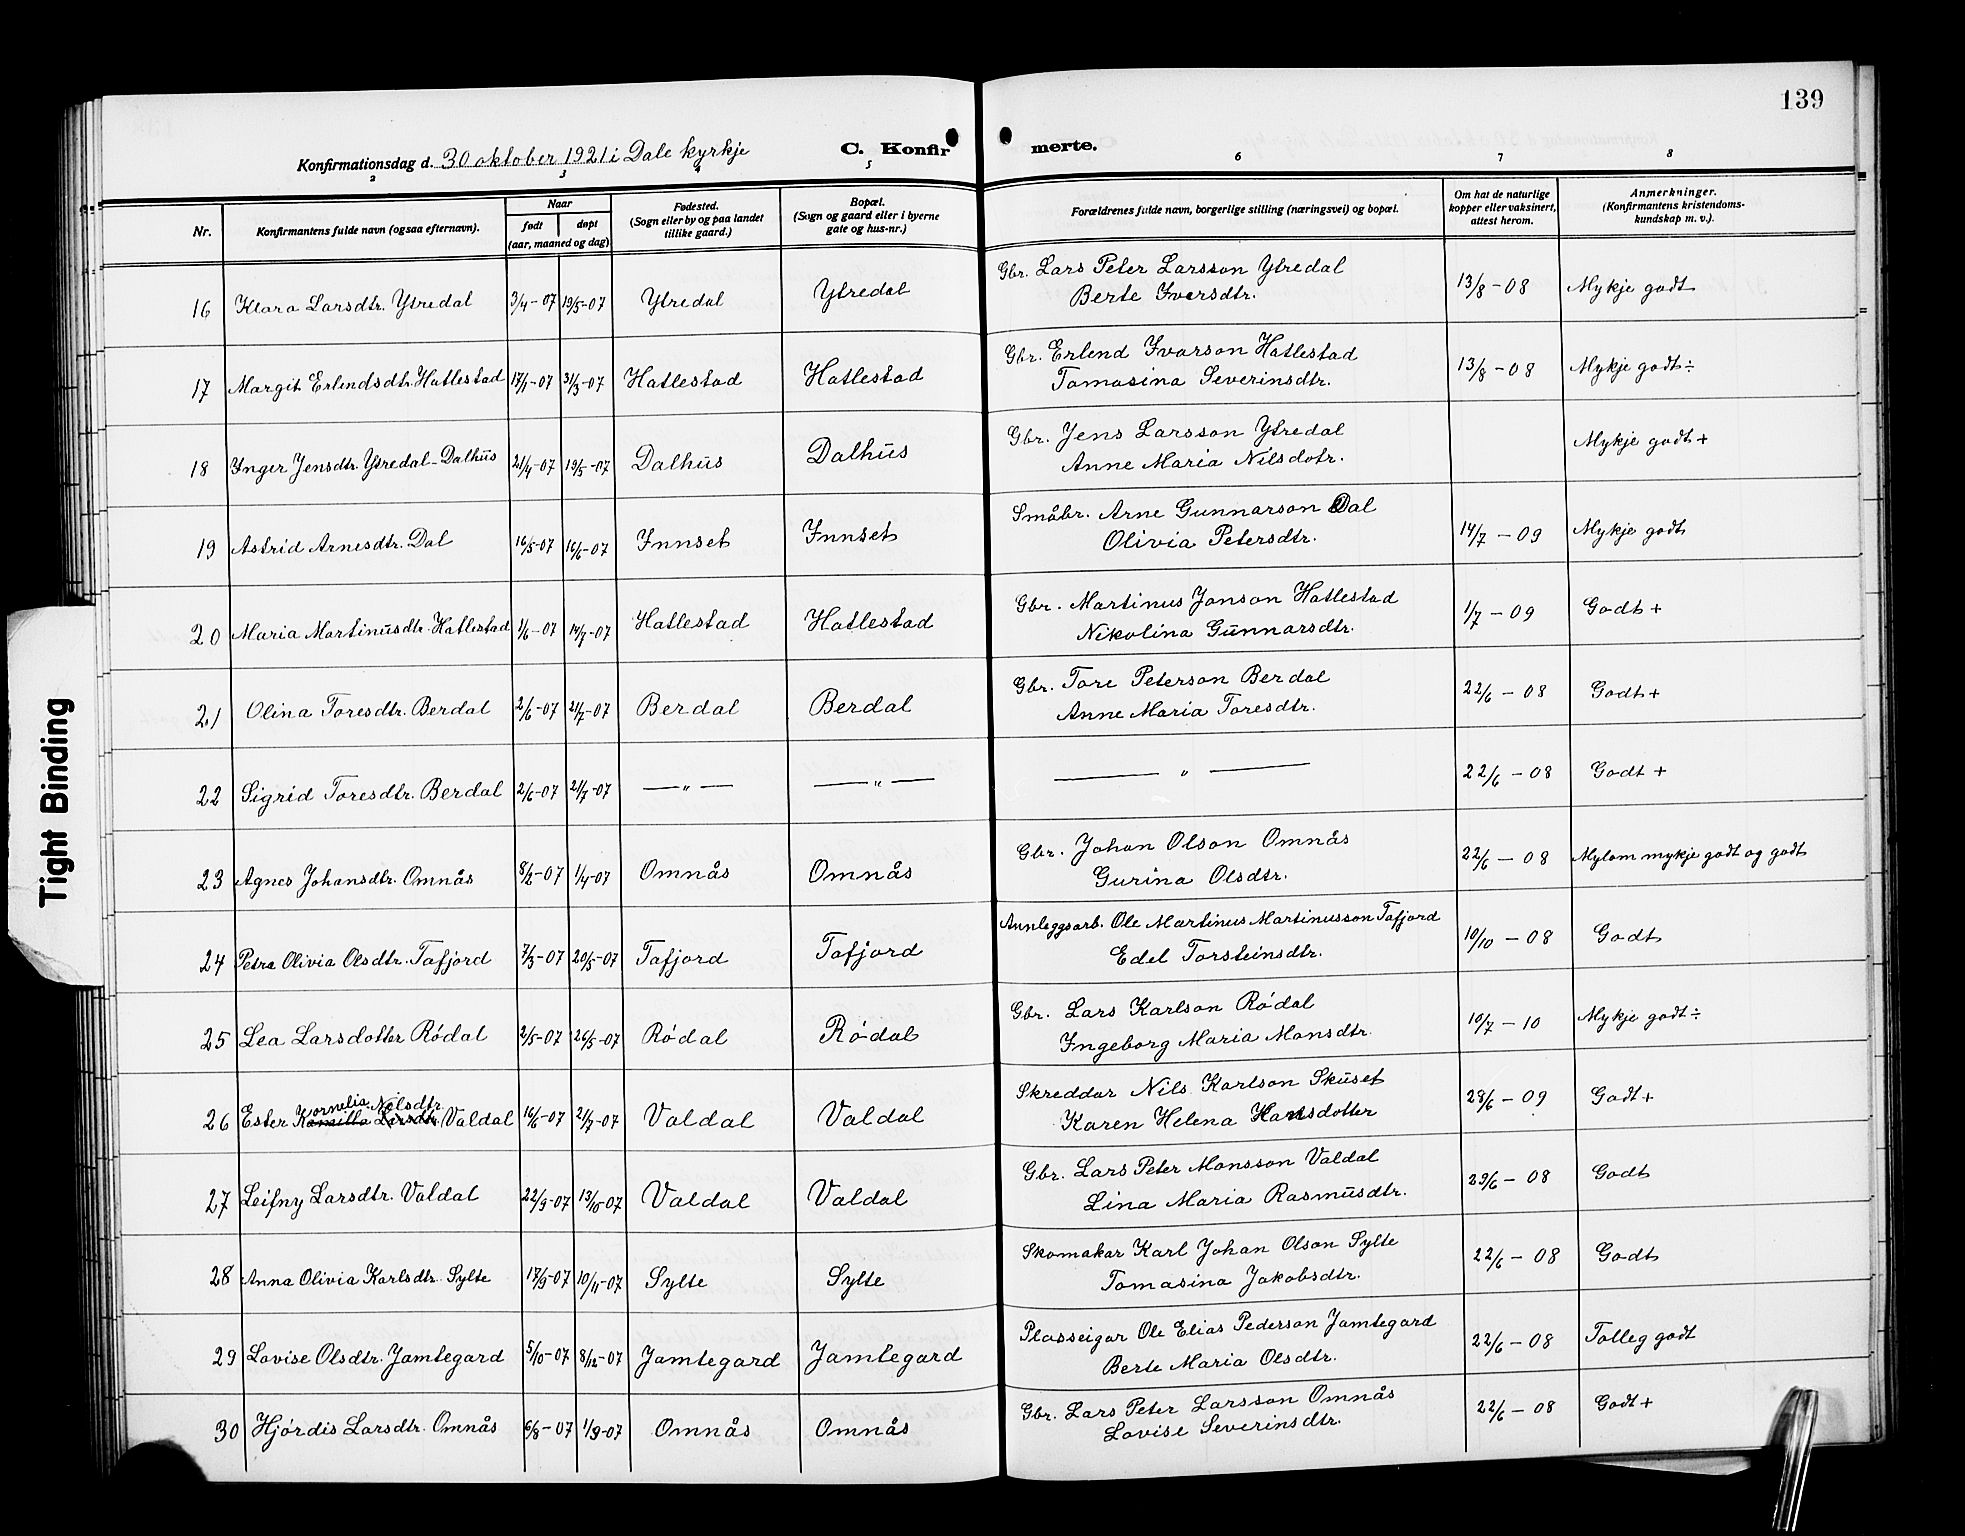 139
Konfirmationsdag d. 30 oktober 1921 i Dale kyrkje
C. Konfirmerte.
2 3 4 5 6 7 8
Nr. Konfirmantens fulde navn (ogsaa efternavn). Naar født døpt (aar, maaned og dag) Fødested. (Sogn eller by og paa landet tillike gaard.) Bopæl. (Sogn og gaard eller i byerne gate og hus-nr.) Forældrenes fulde navn, borgerlige stilling (næringsvei) og bopæl. Om hat de naturlige kopper eller vaksinert, attest herom. Anmerkninger. (Konfirmantens kristendoms-kundskap m. v.).
16 Klara Larsdtr. Ytredal 3/4-07 19/5-07 Ytredal Ytredal Gbr. Lars Peter Larsson Ytredal 13/8-08 Mykje godt
Berte Ivarsdtr.
17 Margit Erlendsdtr. Hatlestad 17/1-07 31/3-07 Hatlestad Hatlestad Gbr. Erlend Ivarson Hatlestad 13/8-08 Mykje godt ÷
Tomasina Severinsdtr.
18 Inger Jensdtr. Ytredal-Dalhus 21/4-07 19/5-07 Dalhus Dalhus Gbr. Jens Larsson Ytredal Mykje godt +
Anne Maria Nilsdotr.
19 Astrid Arnesdtr. Dal 16/5-07 16/6-07 Innset Innset Småbr. Arne Gunnarson Dal 14/7-09 Mykje godt
Olivia Petersdtr.
20 Maria Martinusdtr. Hatlestad 1/6-07 14/7-07 Hatlestad Hatlestad Gbr. Martinus Jonson Hatlestad 1/7-09 Godt +
Nikolina Gunnarsdtr.
21 Olina Toresdtr. Berdal 2/6-07 21/7-07 Berdal Berdal Gbr. Tore Peterson Berdal 22/6-08 Godt +
Anne Maria Toresdtr.
22 Sigrid Toresdtr. Berdal 2/6-07 21/7-07 —„— —„— —„— 22/6-08 Godt +
23 Agnes Johansdtr. Omnås 8/2-07 1/4-07 Omnås Omnås Gbr. Johan Olson Omnås 22/6-08 Mylom mykje godt og godt
Gurina Olsdtr.
24 Petra Olivia Olsdtr. Tafjord 7/3-07 20/5-07 Tafjord Tafjord Annleggsarb. Ole Martinus Martinusson Tafjord 10/10-08 Godt
Edel Torsteinsdtr.
25 Lea Larsdotter Rødal 2/5-07 26/5-07 Rødal Rødal Gbr. Lars Karlson Rødal 10/7-10 Mykje godt ÷
Ingeborg Maria Monsdtr.
26 Ester Kornelia Nilsdtr. Valdal 16/6-07 21/7-07 Valdal Valdal Skreddar Nils Karlson Skuset 28/6-09 Godt +
Karen Helena Hansdotter
27 Leifny Larsdtr. Valdal 22/9-07 13/10-07 Valdal Valdal Gbr. Lars Peter Monsson Valdal 29/6-08 Godt
Lina Maria Rasmusdtr.
28 Anna Olivia Karlsdtr. Sylte 18/9-07 10/11-07 Sylte Sylte Skomakar Karl Johan Olson Sylte 22/6-08 Godt
Tomasina Jakobsdtr.
29 Lovise Olsdtr. Jamtegard 5/10-07 8/12-07 Jamtegard Jamtegard Plasseigar Ole Elias Pederson Jamtegard 22/6-08 Tolleg godt
Berte Maria Olsdtr.
30 Hjørdis Larsdtr. Omnås 6/8-07 1/9-07 Omnås Omnås Gbr. Lars Peter Larsson Omnås 22/6-08 Godt +
Lovise Severinsdtr.
Tight Binding